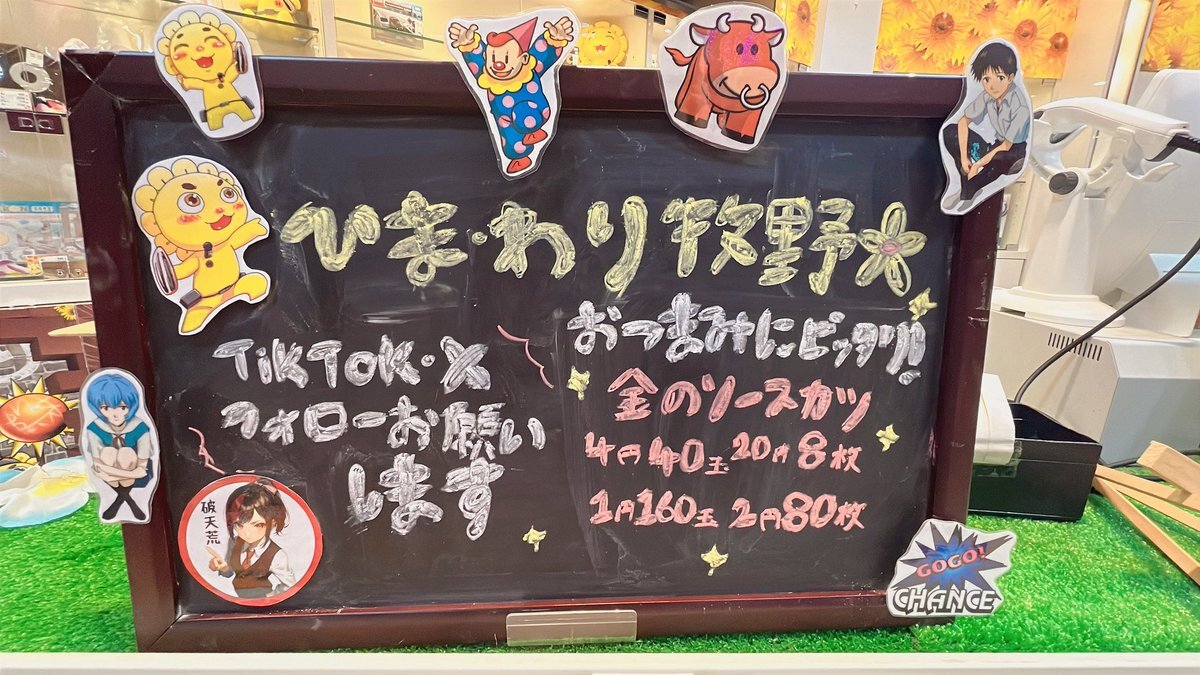 ひまわり牧野
TikTok・X
フォローお願い
します
おつまみにピッタリ!!
金のソースカツ
4円40玉 20円8枚
1円160玉 2円80枚
破天荒
GOGO!
CHANCE